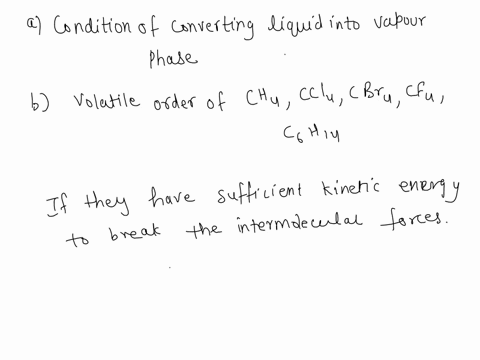 a) Condition of converting liquid into vapour
phase
b) Volatile order of CH4, CCl4, CBr4, CF4,
C6H14
If they have sufficient kinetic energy
to break the intermolecular forces.